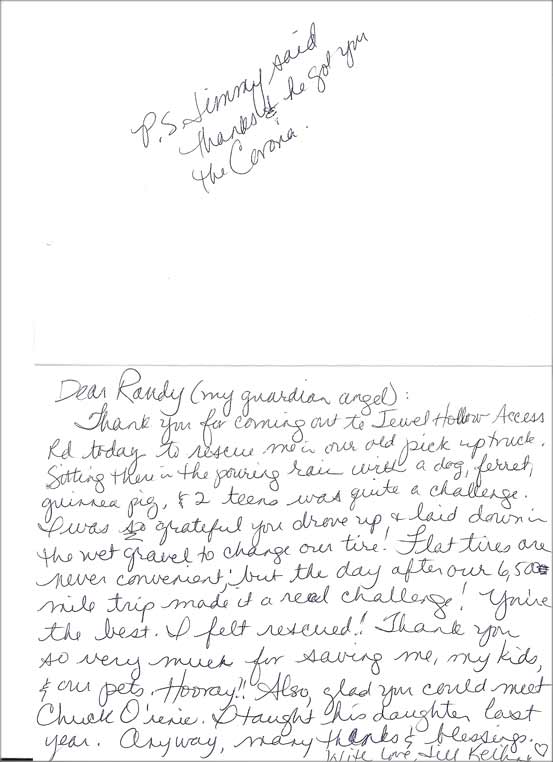 P.S. Jimmy said
thanks & he got you
the Corona.
Dear Randy (my guardian angel):
Thank you for coming out to Jewel Hollow Access
Rd today to rescue me in our old pick up truck.
Sitting there in the pouring rain with a dog, ferret,
guinnea pig, & 2 teens was quite a challenge.
I was so grateful you drove up & laid down in
the wet gravel to change our tire! Flat tires are
never convenient, but the day after our 6,500
mile trip made it a real challenge! You're
the best. I felt rescued! Thank you
so very much for saving me, my kids,
& our pets. Hooray!! Also, glad you could meet
Chuck I taught his daughter last
year. Anyway, many thanks & blessings.
Love, Jill